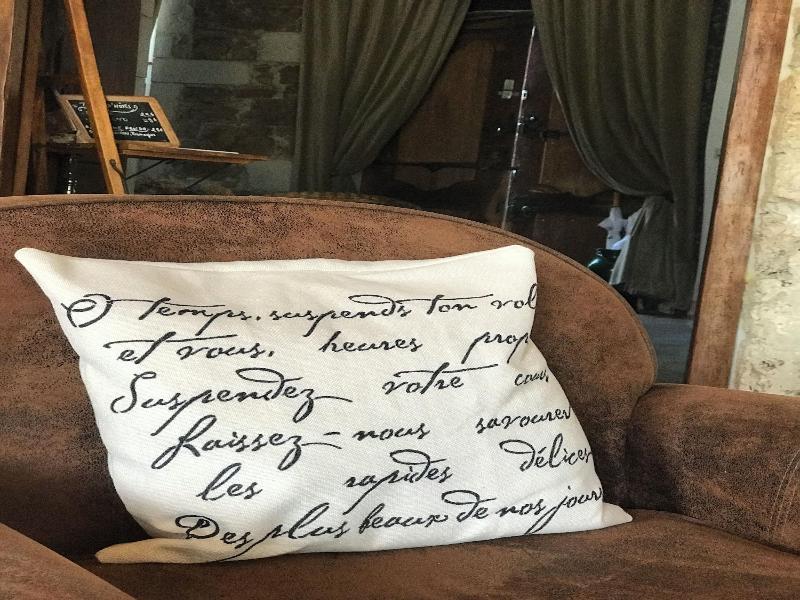 O temps, suspends ton vol
et vous, heures prop
Suspendez votre cour
Laissez-nous savourer
les rapides délices
Des plus beaux de nos jours